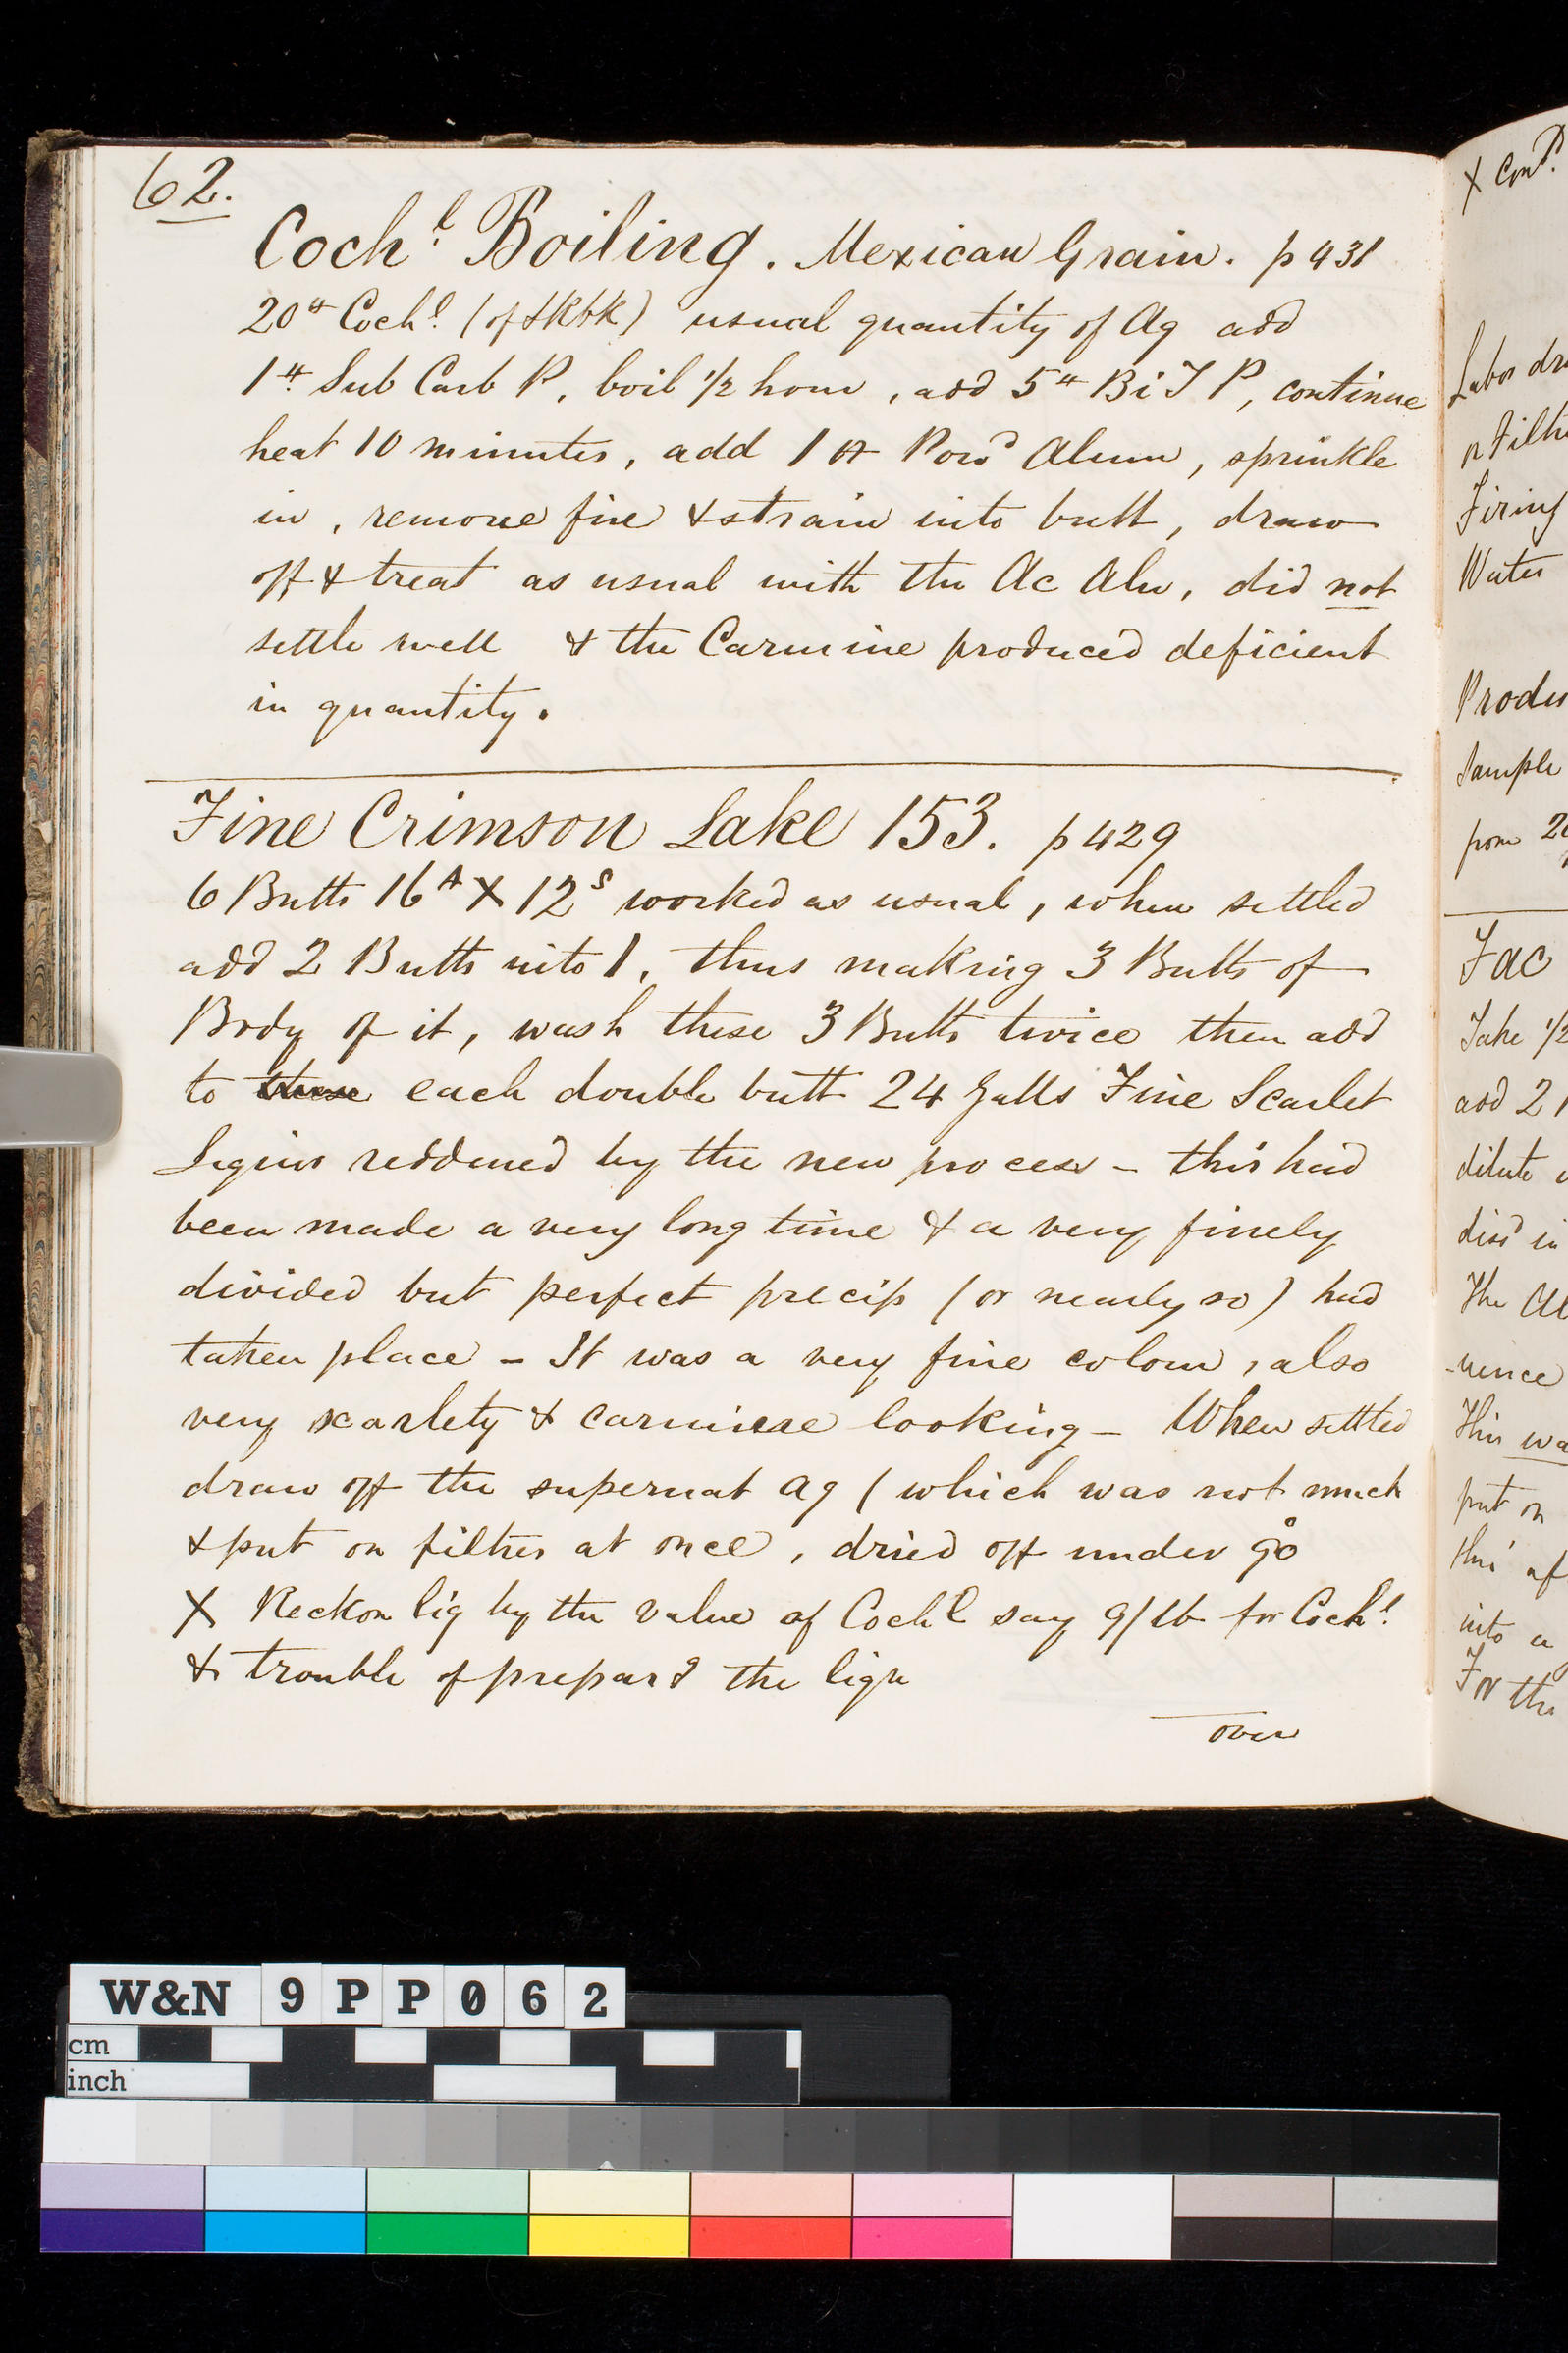 62.
Coch.l Boiling. Mexican Grain. p 431
20# Coch.l (of SKtk) usual quantity of Aq add
1# Sub Carb P, boil 1/2 hour, add 5# Bi T P, continue
heat 10 minutes, add 1 # Powd Alum, sprinkle
in, remove fire & strain into butt, draw
off & treat as usual with the Ac Alu, did not
settle well & the Carmine produced deficient
in quantity.
Fine Crimson Lake 153. p 429
6 Butts 16A X 12S worked as usual, when settled
add 2 Butts into 1, thus making 3 Butts of
Body of it, wash these 3 Butts twice then add
to these each double butt 24 Galls Fine Scarlet
Liquor reddened by the new process – this had
been made a very long time & a very finely
divided but perfect precip (or nearly so) had
taken place – It was a very fine colour, also
very scarlety & carmine looking – When settled
draw off the supernat Aq (which was not much
& put on filters at once, dried off under 90
X Reckon liq by the value of Cochl say 9/ lb for Coch.l
& trouble of preparg the liqr
over
X Cont.d
Labor
or
Firing
Water
Sample
from
Take 1/2
add 2
dilute
dissd in
The
-uence
This
put on
this
into a
For the
W&N 9PP062
cm
inch